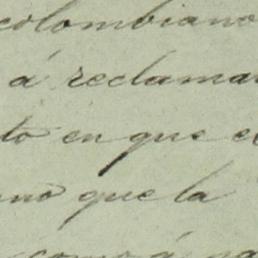 colombiano
á reclamar
to en que e
no que la
como á